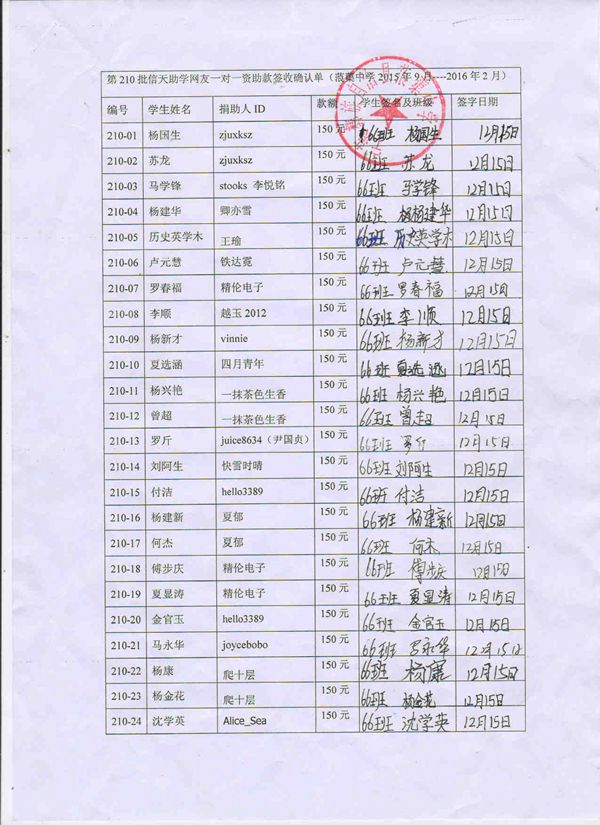 第 210 批信天助学网友一对一资助款签收确认单（菠萝中学 2015 年 9 月----2016 年 2 月）
编号 学生姓名 捐助人 ID 款额 学生签名及班级 签字日期
210-01 杨国生 zjuxksz 150 元 66班 杨国生 12月15日
210-02 苏龙 zjuxksz 150 元 66班 苏龙 12月15日
210-03 马学锋 stooks 李悦铭 150 元 66班 马学锋 12月15日
210-04 杨建华 卿亦雪 150 元 66班 杨建华 12月15日
210-05 历史英学木 王瑜 150 元 66班 历史英学木 12月15日
210-06 卢元慧 铁达霓 150 元 66班 卢元慧 12月15日
210-07 罗春福 精伦电子 150 元 66班 罗春福 12月15日
210-08 李顺 越玉 2012 150 元 66班 李顺 12月15日
210-09 杨新才 vinnie 150 元 66班 杨新才 12月15日
210-10 夏选涵 四月青年 150 元 66班 夏选涵 12月15日
210-11 杨兴艳 一抹茶色生香 150 元 66班 杨兴艳 12月15日
210-12 曾超 一抹茶色生香 150 元 66班 曾超 12月15日
210-13 罗斤 juice8634（尹国贞） 150 元 66班 罗斤 12月15日
210-14 刘阿生 快雪时晴 150 元 66班 刘阿生 12月15日
210-15 付洁 hello3389 150 元 66班 付洁 12月15日
210-16 杨建新 夏郁 150 元 66班 杨建新 12月15日
210-17 何杰 夏郁 150 元 66班 何杰 12月15日
210-18 傅步庆 精伦电子 150 元 66班 傅步庆 12月15日
210-19 夏显涛 精伦电子 150 元 66班 夏显涛 12月15日
210-20 金官玉 hello3389 150 元 66班 金官玉 12月15日
210-21 马永华 joycebobo 150 元 66班 马永华 12月15日
210-22 杨康 爬十层 150 元 66班 杨康 12月15日
210-23 杨金花 爬十层 150 元 66班 杨金花 12月15日
210-24 沈学英 Alice_Sea 150 元 66班 沈学英 12月15日